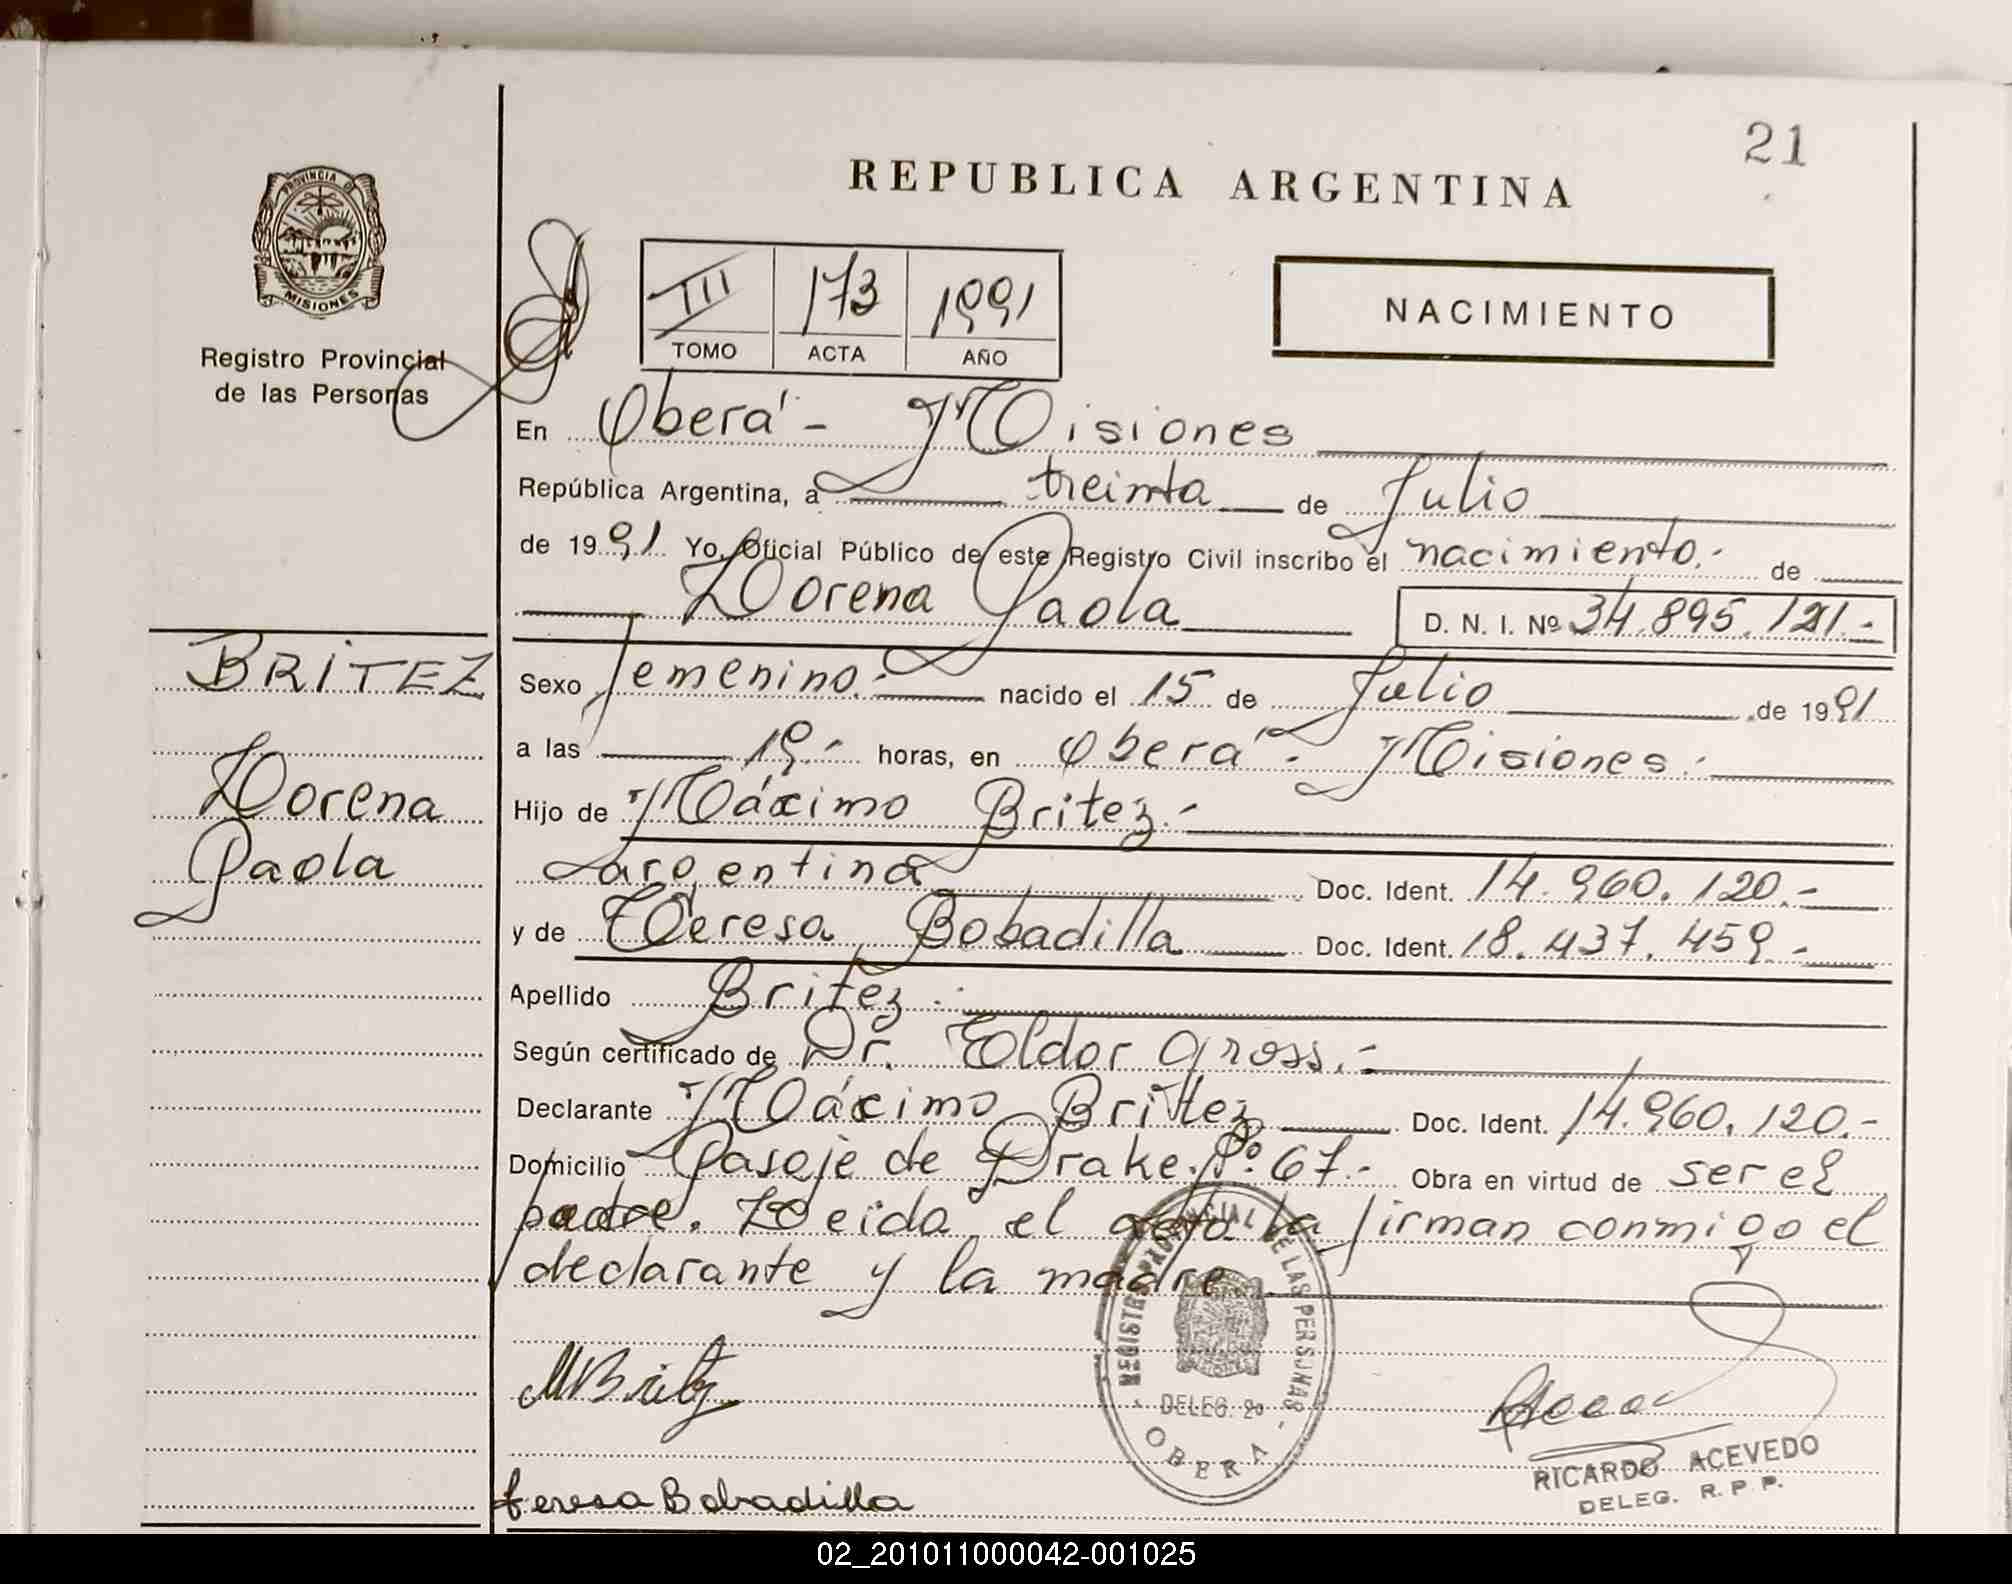 21
REPUBLICA ARGENTINA
PROVINCIA DE
MISIONES
Registro Provincial
de las Personas
III 173 1991
TOMO ACTA AÑO
NACIMIENTO
En Oberá - Misiones
República Argentina, a treinta de Julio
de 1991 Yo, Oficial Público de este Registro Civil inscribo el nacimiento.- de
Lorena Paola D. N. I. Nº 34.895.121.-
BRITEZ
Lorena
Paola
Sexo femenino.- nacido el 15 de Julio de 1991
a las 19.- horas, en Oberá - Misiones.-
Hijo de Máximo Britez.-
argentina Doc. Ident. 14.960.120.-
y de Teresa Bobadilla Doc. Ident. 18.437.459.-
Apellido Britez.-
Según certificado de Dr. Eldor Gross.-
Declarante Máximo Britez Doc. Ident. 14.960.120.-
Domicilio Pasaje de Drake. Pº. 67.- Obra en virtud de ser el
padre. Leida el acta la firman conmigo el
declarante y la madre
REGISTRO PROVINCIAL DE LAS PERSONAS
DELEG. 2º
- OBERA -
MBritez
RICARDO ACEVEDO
DELEG. R. P. P.
teresa Bobadilla
02_201011000042-001025